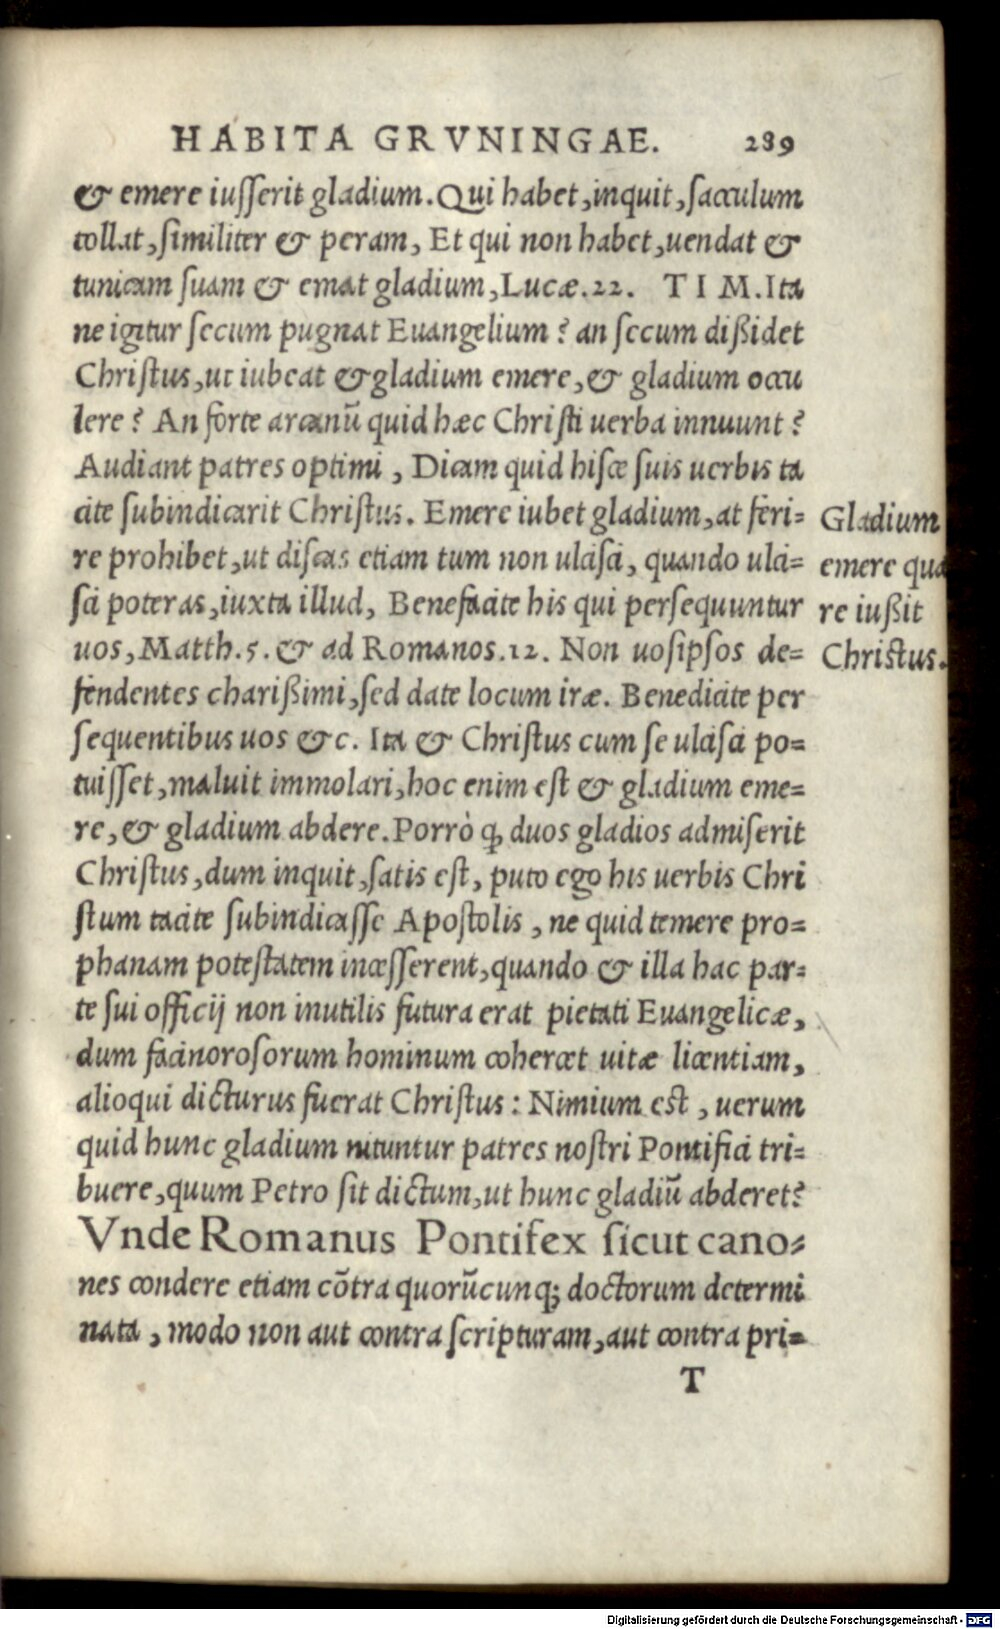 HABITA GRVNINGAE. 289
& emere iusserit gladium. Qui habet, inquit, sacculum
tollat, similiter & peram, Et qui non habet, uendat &
tunicam suam & emat gladium, Lucæ.22. TIM. Ita
ne igitur secum pugnat Euangelium? an secum dißidet
Christus, ut iubeat & gladium emere, & gladium occu
lere? An forte arcanũ quid hæc Christi uerba innuunt?
Audiant patres optimi, Dicam quid hisce suis uerbis ta
cite subindicarit Christus. Emere iubet gladium, at feri=
re prohibet, ut discas etiam tum non ulcisci, quando ulci=
sci poteras, iuxta illud, Benefacite his qui persequuntur
uos, Matth.5. & ad Romanos.12. Non uosipsos de=
fendentes charißimi, sed date locum iræ. Benedicite per
sequentibus uos &c. Ita & Christus cum se ulcisci po=
tuisset, maluit immolari, hoc enim est & gladium eme=
re, & gladium abdere. Porrò ꝙ duos gladios admiserit
Christus, dum inquit, satis est, puto ego his uerbis Chri
stum tacite subindicasse Apostolis, ne quid temere pro=
phanam potestatem incesserent, quando & illa hac par=
te sui officij non inutilis futura erat pietati Euangelicæ,
dum facinorosorum hominum cohercet uitæ licentiam,
alioqui dicturus fuerat Christus: Nimium est, uerum
quid hunc gladium nituntur patres nostri Pontifici tri=
buere, quum Petro sit dictum, ut hunc gladiũ abderet?
Vnde Romanus Pontifex sicut cano=
nes condere etiam cõtra quorũcunq; doctorum determi
nata, modo non aut contra scripturam, aut contra pri=
T
Gladium
emere qua
re iußit
Christus.
Digitalisierung gefördert durch die Deutsche Forschungsgemeinschaft - DFG